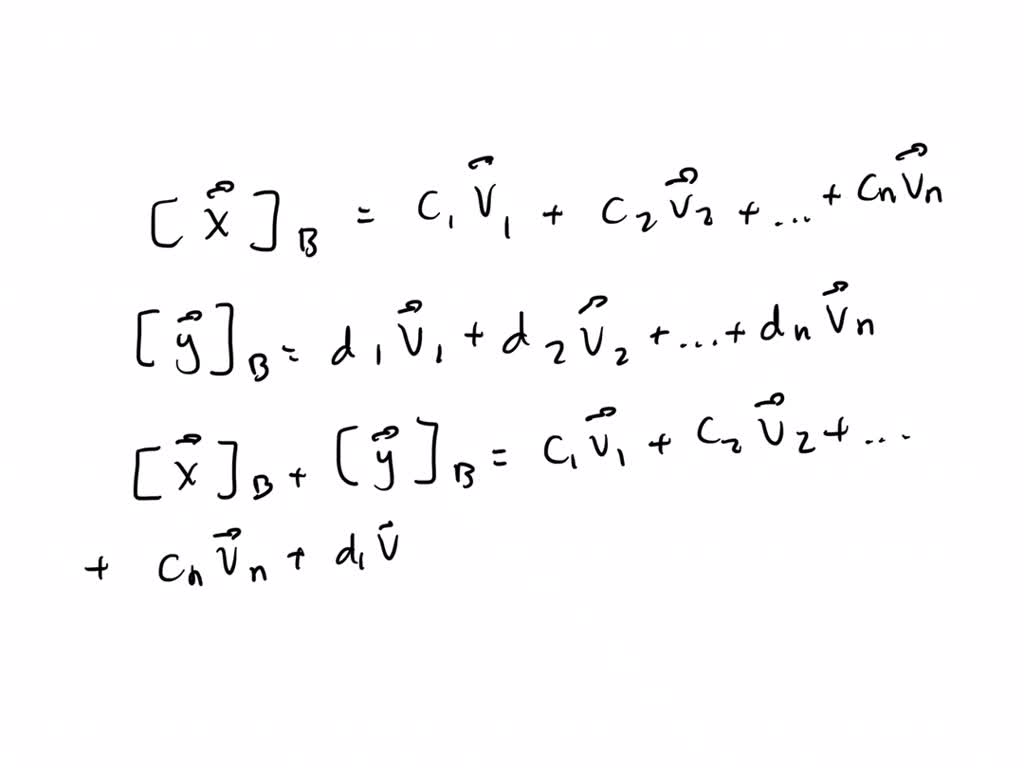 [x⃗]_B = c₁v⃗₁ + c₂v⃗₂ + ... + cₙv⃗ₙ
[y⃗]_B = d₁v⃗₁ + d₂v⃗₂ + ... + dₙv⃗ₙ
[x⃗]_B + [y⃗]_B = c₁v⃗₁ + c₂v⃗₂ + ...
+ cₙv⃗ₙ + d₁v⃗